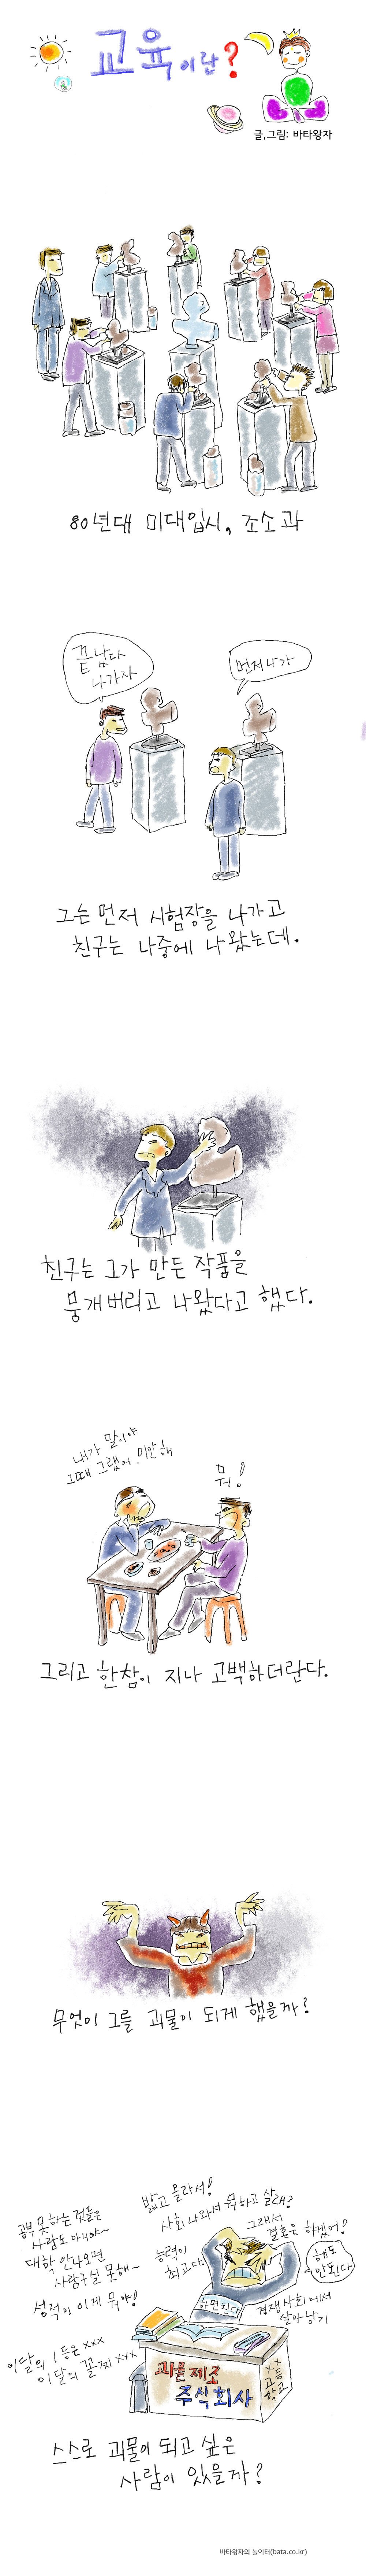 교육이란?
글,그림: 바타왕자
80년대 미대입시, 조소과
끝났다
나가자
먼저나가
그는 먼저 시험장을 나가고
친구는 나중에 나왔는데.
친구는 그가 만든 작품을
뭉개버리고 나왔다고 했다.
내가 말이야
그때 그랬어. 미안해
뭐!
그리고 한참이 지나 고백하더란다.
무엇이 그를 괴물이 되게 했을까?
공부 못하는 것들은
사람도 아니야~
대학 안나오면
사람구실 못해~
성적이 이게 뭐야!
이달의 1등은 xxx
이달의 꼴찌 xxx
밟고 올라서!
사회 나와서 뭐하고 살래?
그래서
결혼은 하겠어!
능력이
최고다.
해도
안된다
하면된다
경쟁사회에서
살아남기
괴물제조
주식회사
xx고등학교
스스로 괴물이 되고 싶은
사람이 있을까?
바타왕자의 놀이터(bata.co.kr)